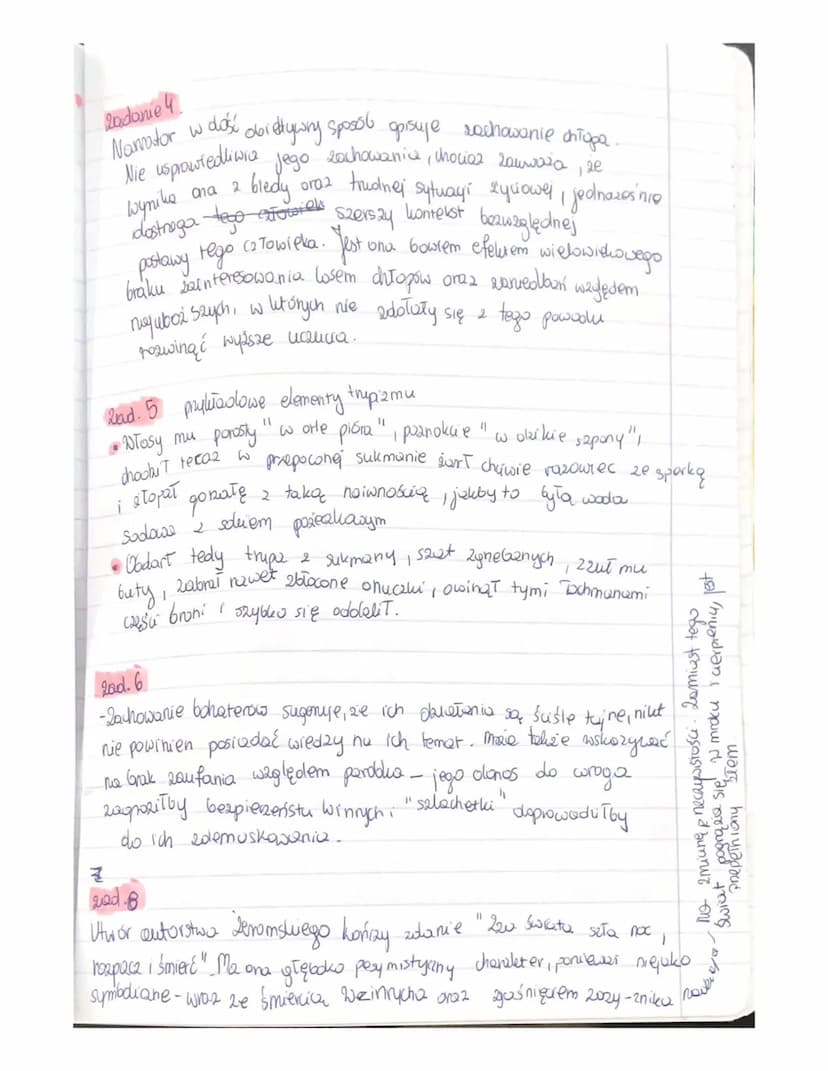 Zadanie 4.
Narrator w dość obiektywny sposób opisuje zachowanie chłopa.
Nie usprawiedliwia jego zachowania, chociaż zauważa, że
wynika ona z biedy oraz trudnej sytuacji życiowej, jednocześnie
dostrzega tego człowieka szerszy kontekst bezwzględnej
postawy tego człowieka. Jest ona bowiem efektem wielowiekowego
braku zainteresowania losem chłopów oraz zaniedbań względem
najuboższych, w których nie zdołały się z tego powodu
rozwinąć wyższe uczucia.
Zad. 5 przykładowe elementy trupizmu
• Włosy mu porosły "w orle pióra", paznokcie "w dzikie szpony",
chodził teraz w przepoconej sukmanie żarł chciwie razowiec ze sperką
i żłopał gorzałę z taką naiwnością, jakby to była woda
sodowa z sokiem porzeczkowym
• Obdarł tedy trupa z sukmany, szat zgrzebnych, zzuł mu
buty, zabrał nawet zbłocone onuczki, owinął tymi łachmanami
części broni i szybko się oddalił.
zad. 6
- Zachowanie bohaterów sugeruje, że ich działania są ściśle tajne, nikt
nie powinien posiadać wiedzy na ich temat. Może także wskazywać
na brak zaufania względem parobka – jego donos do wroga
zagroziłby bezpieczeństwu Winrych i "szlachetki" doprowadziłby
do ich zdemaskowania.
zad. 8
Utwór autorstwa Żeromskiego kończy zdanie "Zza świata szła noc,
rozpacz i śmierć". Ma ona głęboko pesymistyczny charakter, ponieważ niejako
symbolicznie - wraz ze śmiercią Winrycha oraz zgaśnięciem zorzy - znika nadzieja
na zmianę rzeczywistości. Zamiast tego
świat pogrąża się w mroku i cierpieniu, jest
przepełniony złem